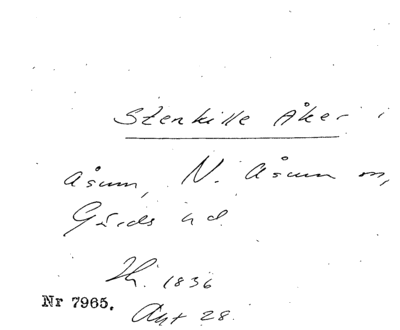 Stenkille Åker i
Åsum, N. Åsum sn,
Gärds hd.
1836
Nr 7965. Akt 28.